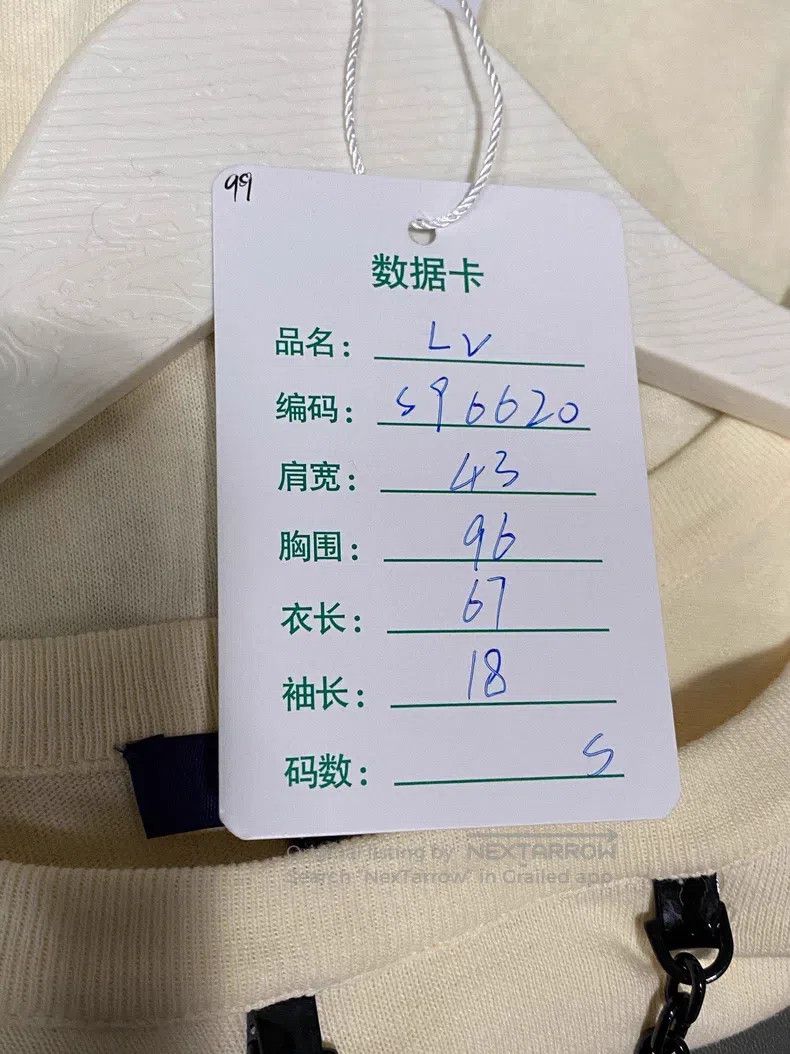 99
数据卡
品名: LV
编码: S96620
肩宽: 43
胸围: 96
衣长: 67
袖长: 18
码数: S
Original listing by NEXTARROW
Search "NexTarrow" in Grailed app